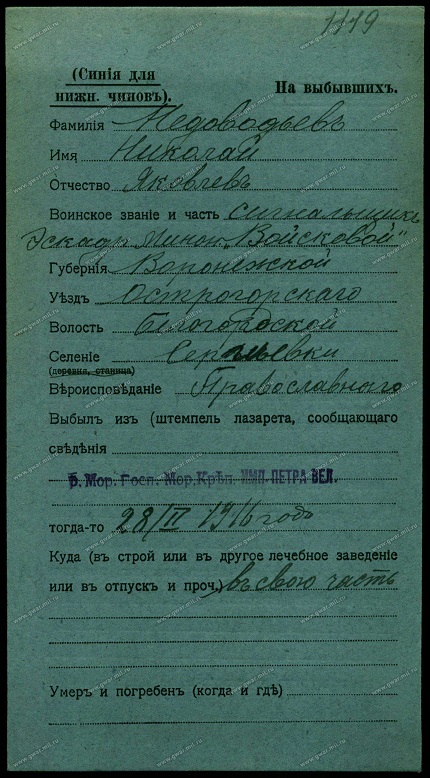 1119
(Синія для
нижн. чиновъ).
На выбывшихъ.
Фамилія Недоводьевъ
Имя Николай
Отчество Яковлевъ
Воинское званіе и часть сигнальщикъ
Эскадр. Минон. „Войсковой"
Губернія Воронежской
Уѣздъ Острогорскаго
Волость Белогородской
Селеніе
(деревня, станица)
Вѣроисповѣданіе Православнаго
Выбылъ изъ (штемпель лазарета, сообщающаго
свѣдѣнія
Б. Мор. Госп. Мор. Крѣп. ИМП. ПЕТРА ВЕЛ.
тогда-то 28/III 1916 годъ
Куда (въ строй или въ другое лечебное заведеніе
или въ отпускъ и проч.) въ свою часть
Умеръ и погребенъ (когда и гдѣ)
www.gwar.mil.ru